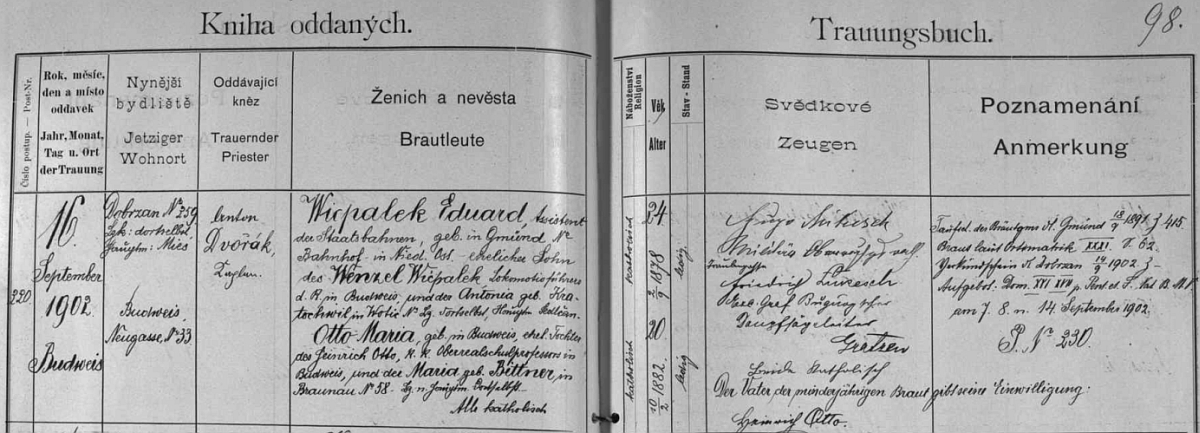 Kniha oddaných.
Trauungsbuch.
98.
Číslo postup. — Post-Nr.
Rok, měsíc,
den a místo
oddavek
Jahr, Monat,
Tag u. Ort
der Trauung
Nynější
bydliště
Jetziger
Wohnort
Oddávající
kněz
Trauernder
Priester
Ženich a nevěsta
Brautleute
Náboženství
Religion
Věk
Alter
Stav - Stand
Svědkové
Zeugen
Poznamenání
Anmerkung
220.
16.
September
1902.
Budweis
Dobrzan Nº 259
Mies
Budweis,
Neugasse, Nº 33
Anton
Dvořák,
Kaplan.
Wičpalek Eduard, Assistent
der Staatsbahnen, geb. in Gmünd Nº
Bahnhof in Nied. Öst. ehelicher Sohn
des Wenzel Wičpalek Lokomotivführers
d. R. in Budweis, und der Antonia geb. Kra-
tochwil, in Wotic
Otto Maria, geb. in Budweis, ehel. Tochter
des Heinrich Otto, k. k. Oberrealschulprofessors in
Budweis, und der Maria geb. Bittner, in
Braunau Nº 58.
Alle katholisch
katholisch
24
2/9 1878
ledig
katholisch
20
10/2 1882
ledig
Hugo
Militär
Friedrich Lukesch
Gratzen
Beide katholisch
Der Vater der minderjährigen Braut gibt seine Einwilligung:
Heinrich Otto.
Taufsch. des Bräutigams Gmünd 18/9 1891 Z 415
Braut laut Ortsmatrik XXXI. F. 62
Verkündschein Dobrzan 14/9 1902
Aufgebot. Dom. XVI XVII p. Pent.
am 7. 8. u. 14 September 1902.
P. Nº 230.